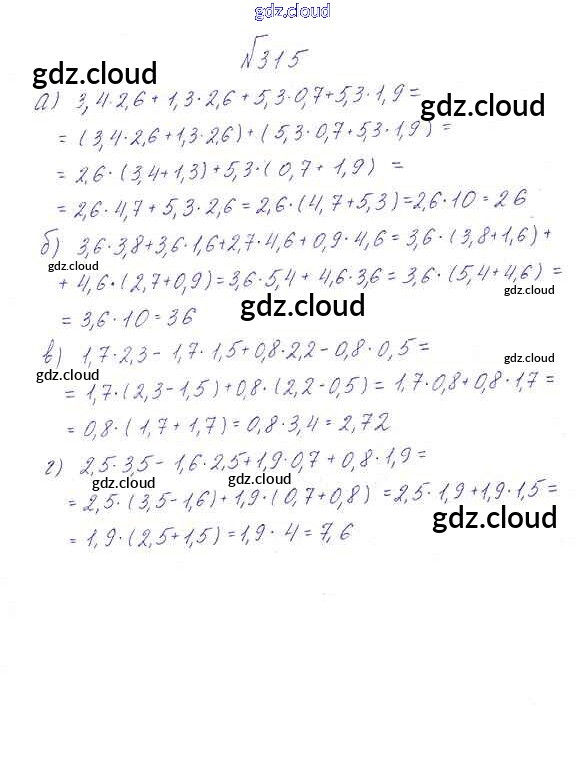 gdz.cloud
№315
gdz.cloud
а) 3,4·2,6+1,3·2,6+5,3·0,7+5,3·1,9=
gdz.cloud
=(3,4·2,6+1,3·2,6)+(5,3·0,7+5,3·1,9)=
=2,6·(3,4+1,3)+5,3·(0,7+1,9)=
=2,6·4,7+5,3·2,6=2,6·(4,7+5,3)=2,6·10=26
б) 3,6·3,8+3,6·1,6+2,7·4,6+0,9·4,6=3,6·(3,8+1,6)+
gdz.cloud
+4,6·(2,7+0,9)=3,6·5,4+4,6·3,6=3,6·(5,4+4,6)=
gdz.cloud
gdz.cloud
=3,6·10=36
в) 1,7·2,3-1,7·1,5+0,8·2,2-0,8·0,5=
gdz.cloud
gdz.cloud
=1,7·(2,3-1,5)+0,8·(2,2-0,5)=1,7·0,8+0,8·1,7=
=0,8·(1,7+1,7)=0,8·3,4=2,72
г) 2,5·3,5-1,6·2,5+1,9·0,7+0,8·1,9=
gdz.cloud
gdz.cloud
=2,5·(3,5-1,6)+1,9·(0,7+0,8)=2,5·1,9+1,9·1,5=
gdz.cloud
=1,9·(2,5+1,5)=1,9·4=7,6